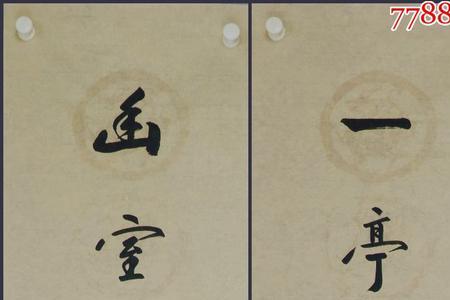 7788
一亭
幽室